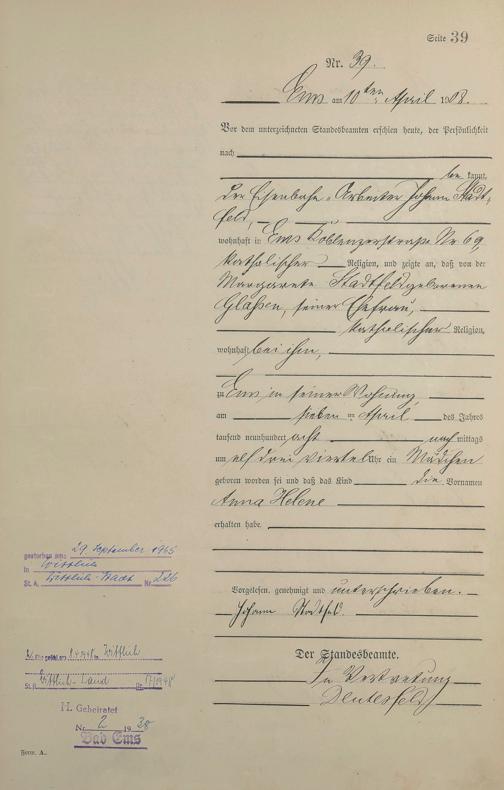 Seite 39
Nr. 39.
Ems am 10ten April 1908.
Vor dem unterzeichneten Standesbeamten erschien heute, der Persönlichkeit
nach
be kannt,
der Eisenbahn-Arbeiter Johann Stadt-
feld,
wohnhaft in Ems Koblenzerstraße Nr. 69,
katholischer Religion, und zeigte an, daß von der
Margarete Stadtfeld geborenen
Claßen, seiner Ehefrau,
katholischer Religion,
wohnhaft bei ihm,
zu Ems in seiner Wohnung,
am sieben ten April des Jahres
tausend neunhundert acht nach mittags
um elf drei viertel Uhr ein Mädchen
geboren worden sei und daß das Kind die Vornamen
Anna Helene
erhalten habe.
Vorgelesen, genehmigt und unterschrieben.
Johann Stadtfeld.
Der Standesbeamte.
In Vertretung
gestorben am: 29. September 1965
in Wittlich
St. A. Wittlich-Stadt Nr.
Wittlich
St. A. Wittlich-Land Nr.
H. Geheiratet
Nr. 2 19 30
Bad Ems
Form. A.